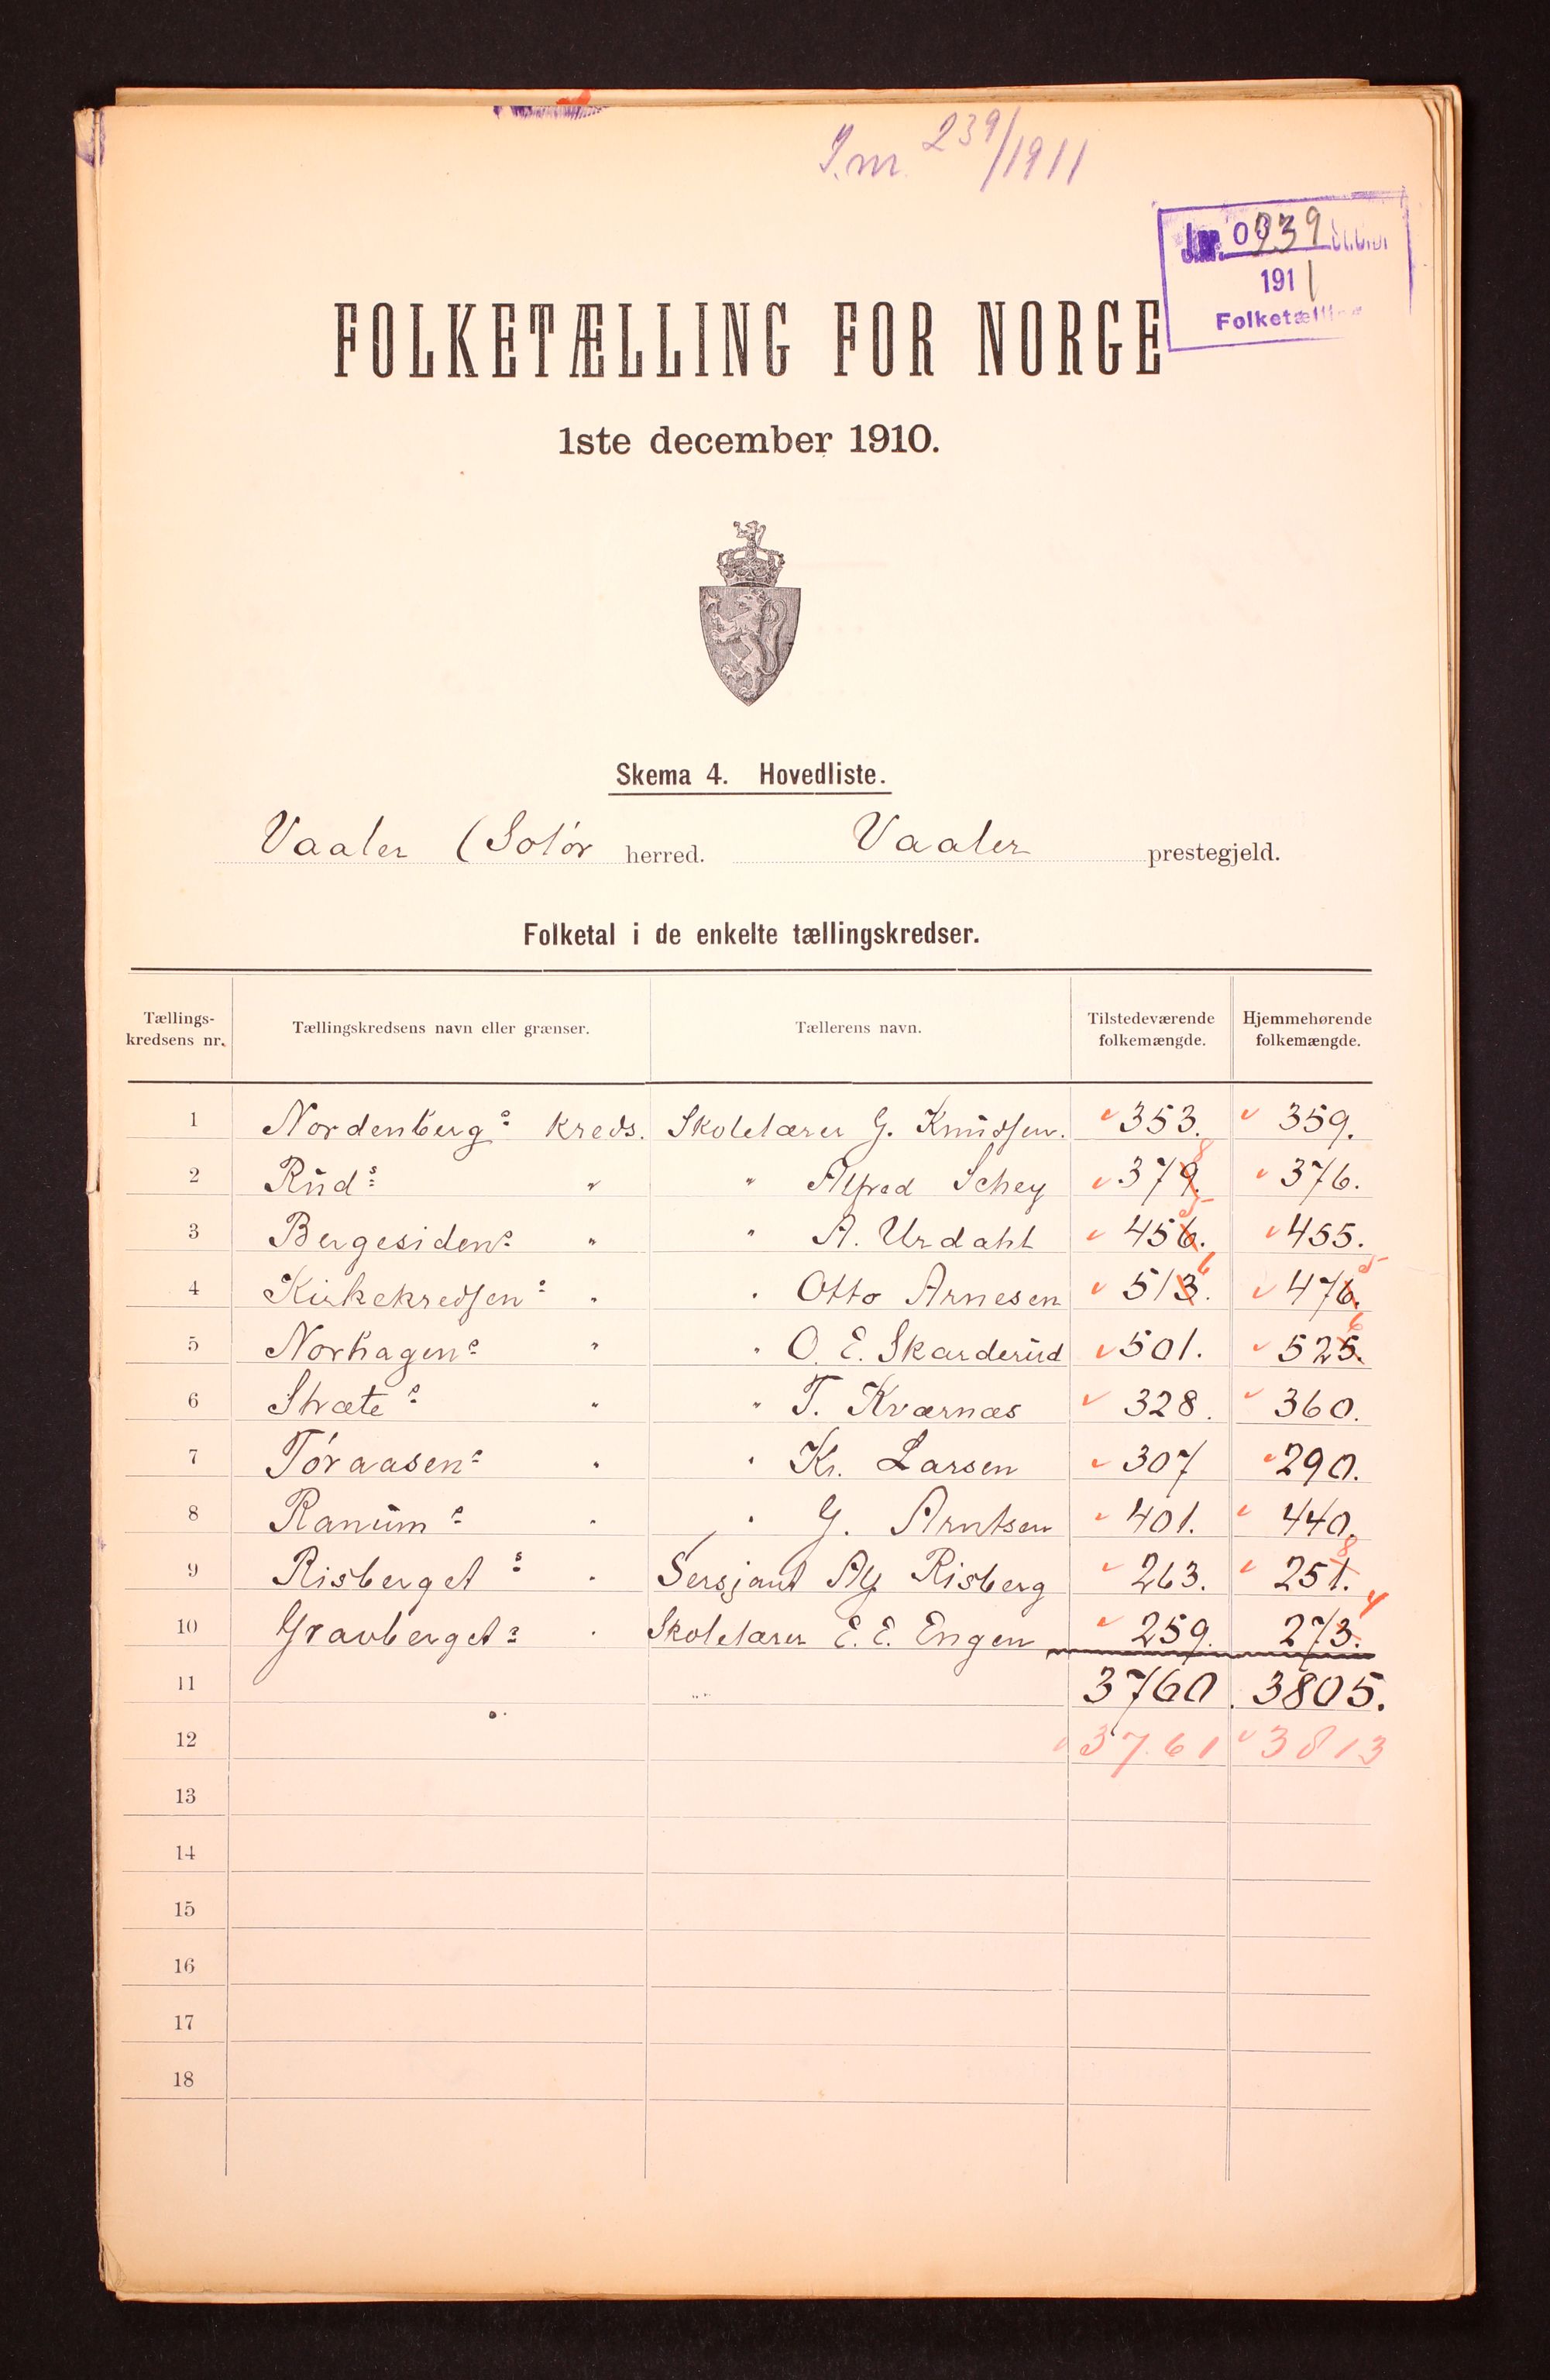 J.nr. 239/1911
Jnr. 00239
1911
Folketælling
FOLKETÆLLING FOR NORGE
1ste december 1910.
Skema 4. Hovedliste.
Vaaler (Solør herred. Vaaler prestegjeld.
Folketal i de enkelte tællingskredser.
Tællings-kredsens nr. Tællingskredsens navn eller grænser. Tællerens navn. Tilstedeværende folkemængde. Hjemmehørende folkemængde.
1 Nordenbergs kreds. Skolelærer G. Knudsen. 353. 359.
2 Ruds " " Alfred Schey 379. 8 376.
3 Bergesidens " " A. Urdahl 456. 5 455.
4 Kirkekredsens " " Otto Arnesen 513. 6 476. 5
5 Norhagens " " O. E. Skarderud 501. 525. 6
6 Stræte s " " T. Kværnæs 328. 360.
7 Tøraasens " " Kr. Larsen 307 290.
8 Ranums " " G. Arntsen 401. 440.
9 Risbergets " Sersjant Alf Risberg 263. 251. 8
10 Gravbergets " Skolelærer E. E. Engen 259. 273. 4
11 3760. 3805.
12 3761 3813
13
14
15
16
17
18